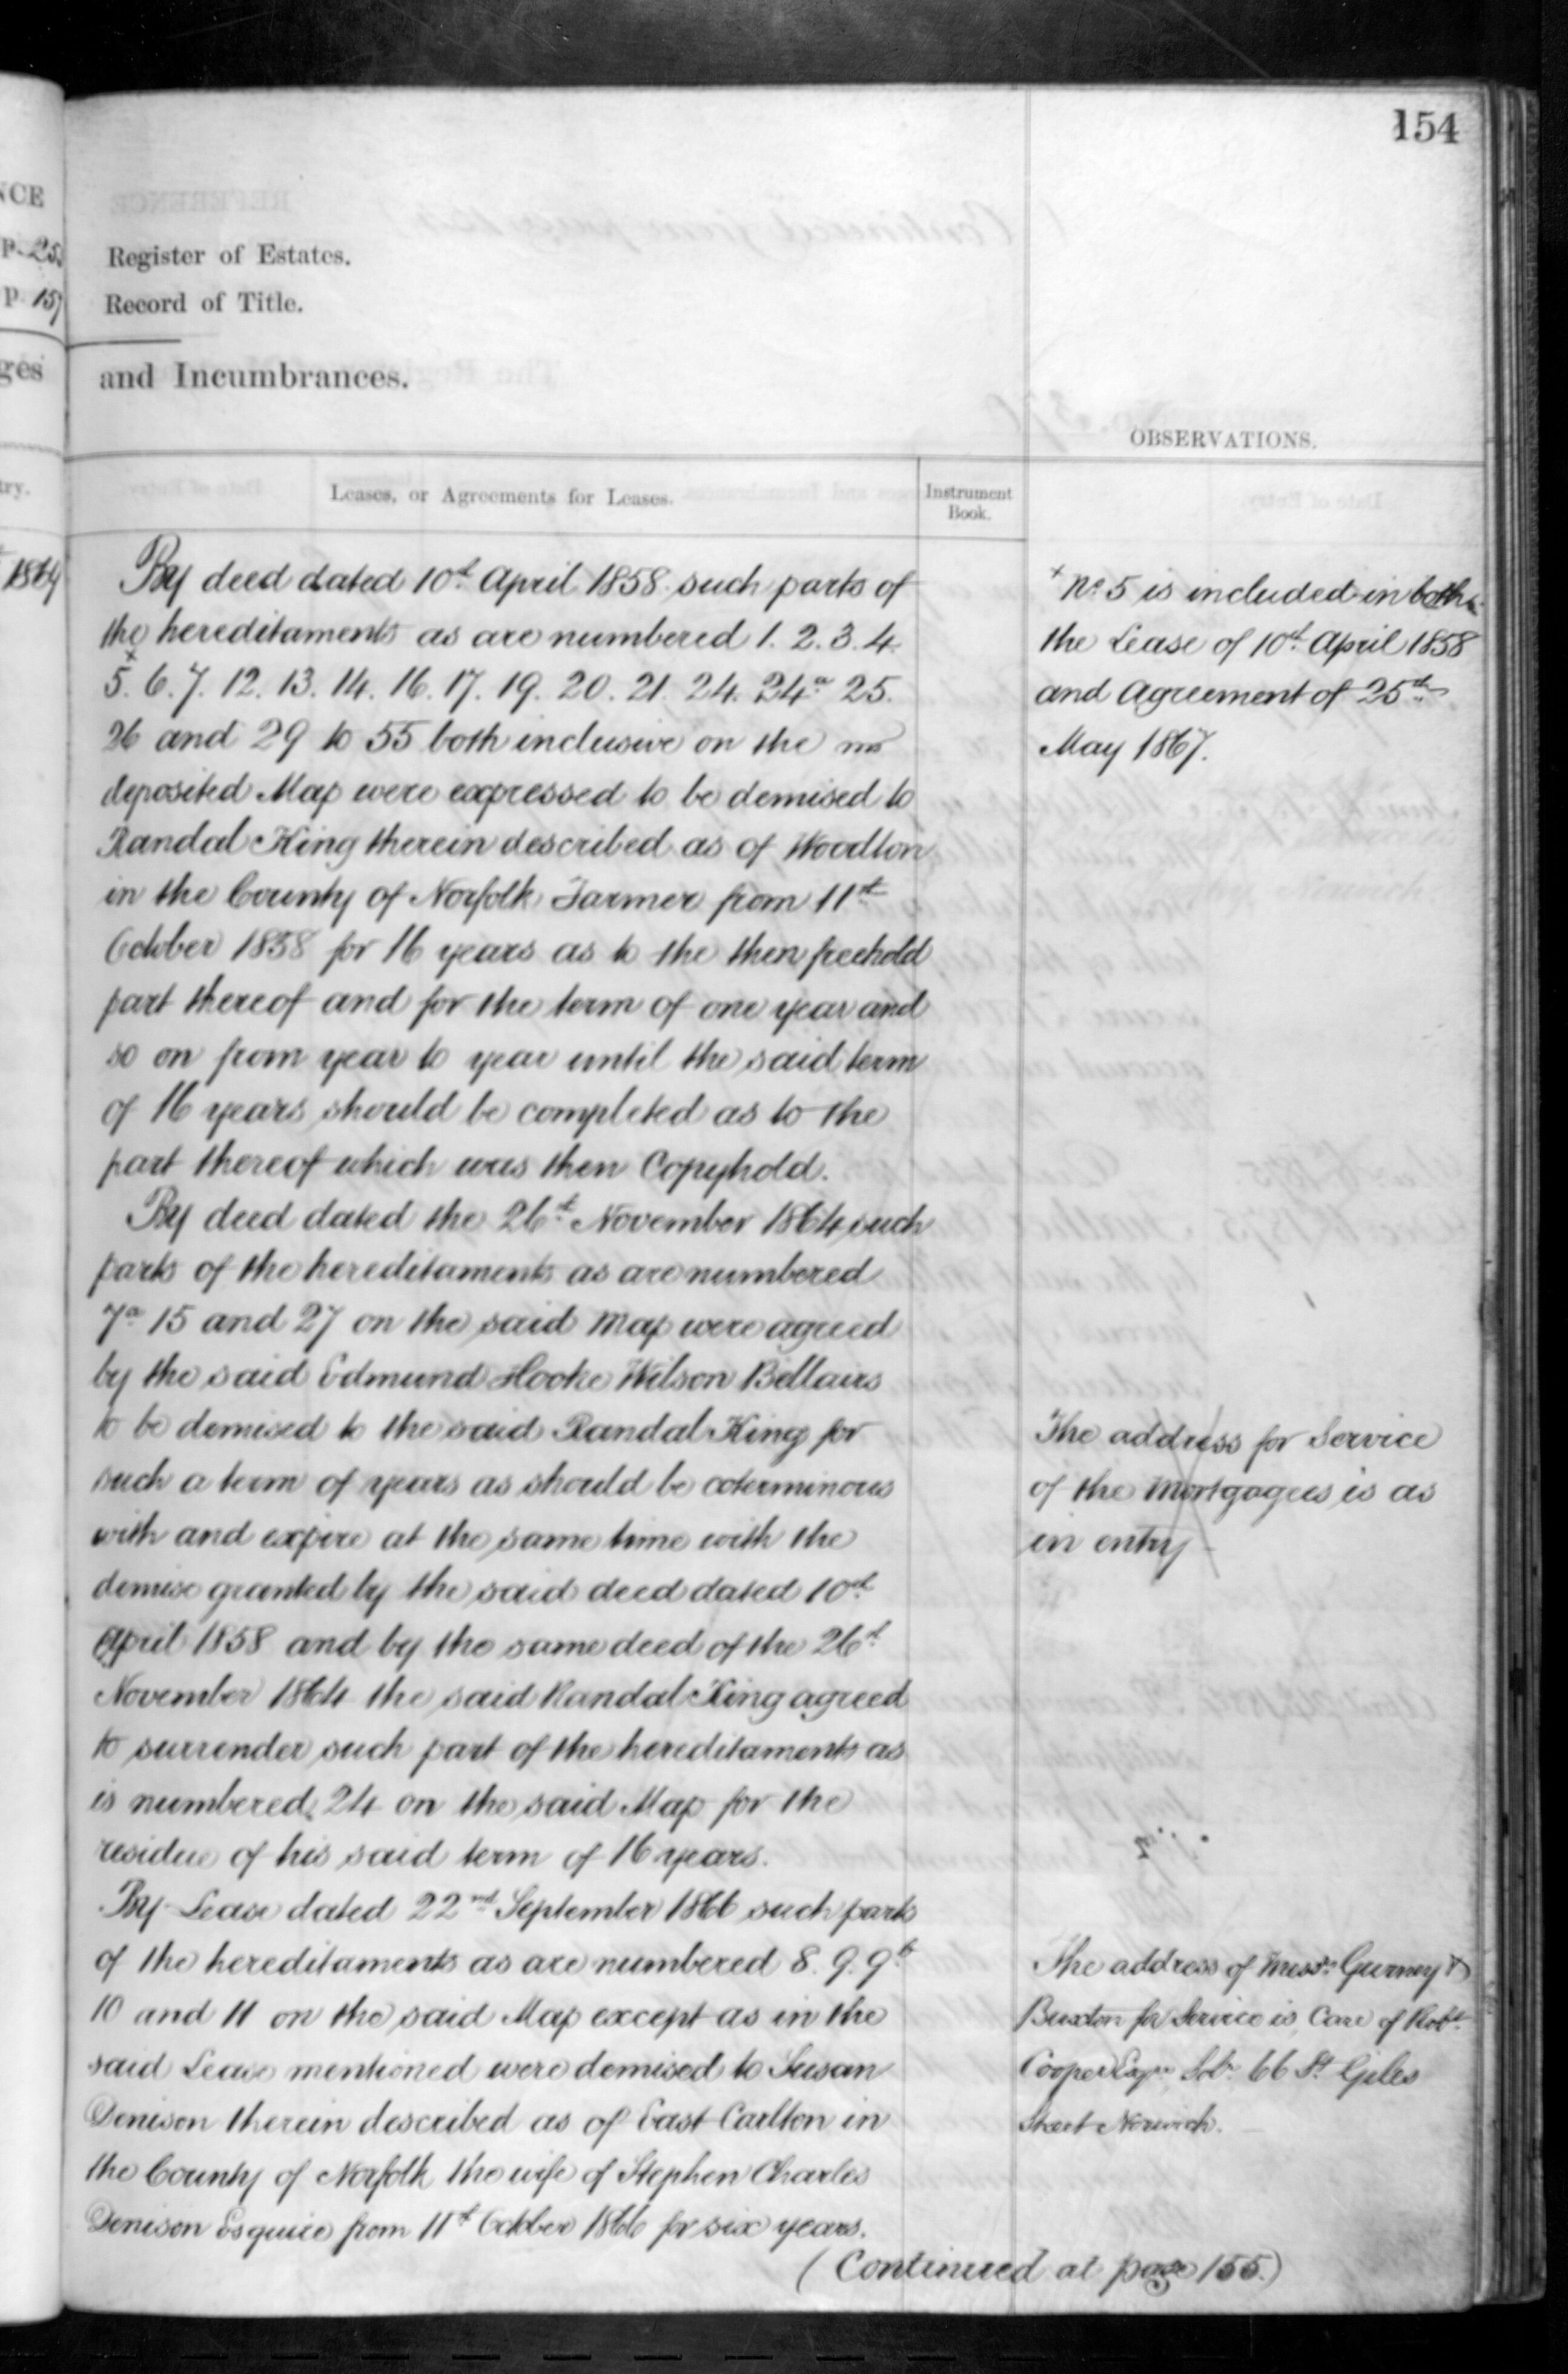 154
Register of Estates.
Record of Title.
and Incumbrances.
OBSERVATIONS.
Leases, or Agreements for Leases.
Instrument
Book.
By deed dated 10th April 1858 such parts of
the hereditaments as are numbered 1. 2. 3. 4.
x
5. 6. 7. 12. 13. 14. 16. 17. 19. 20. 21. 24. 24a 25.
26 and 29 to 55 both inclusive on the
deposited Map were expressed to be demised to
Randal King therein described as of Woodton
in the County of Norfolk Farmer from 11th
October 1858 for 16 years as to the then freehold
part thereof and for the term of one year and
so on from year to year until the said term
of 16 years should be completed as to the
part thereof which was then Copyhold.
By deed dated the 26th November 1864 such
parts of the hereditaments as are numbered
7a 15 and 27 on the said Map were agreed
by the said Edmund Hooke Wilson Bellairs
to be demised to the said Randal King for
such a term of years as should be coterminous
with and expire at the same time with the
demise granted by the said deed dated 10th
April 1858 and by the same deed of the 26th
November 1864 the said Randal King agreed
to surrender such part of the hereditaments as
is numbered 24 on the said Map for the
residue of his said term of 16 years.
By Lease dated 22nd September 1866 such parts
of the hereditaments as are numbered 8. 9. 9b
10 and 11 on the said Map except as in the
said Lease mentioned were demised to Susan
Denison therein described as of East Carlton in
the County of Norfolk the wife of Stephen Charles
Denison Esquire from 11th October 1866 for six years.
(Continued at page 155.)
x No. 5 is included in both
the Lease of 10th April 1858
and Agreement of 25th
May 1867.
The address for Service
of the Mortgagees is as
in entry
The address of Messrs Gurney &
Buxton for Service is Care of Robt
Cooper Esqre Solr 66 St Giles
Street Norwich.
NCE
P. 25
p. 157
ges
try.
1864